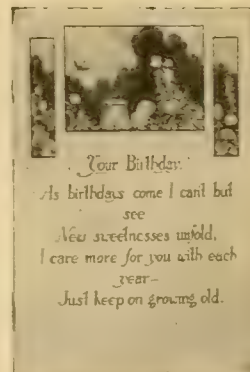 Your Birthday.
As birthdays come I can't but
see
New sweetnesses unfold,
I care more for you with each
year—
Just keep on growing old.